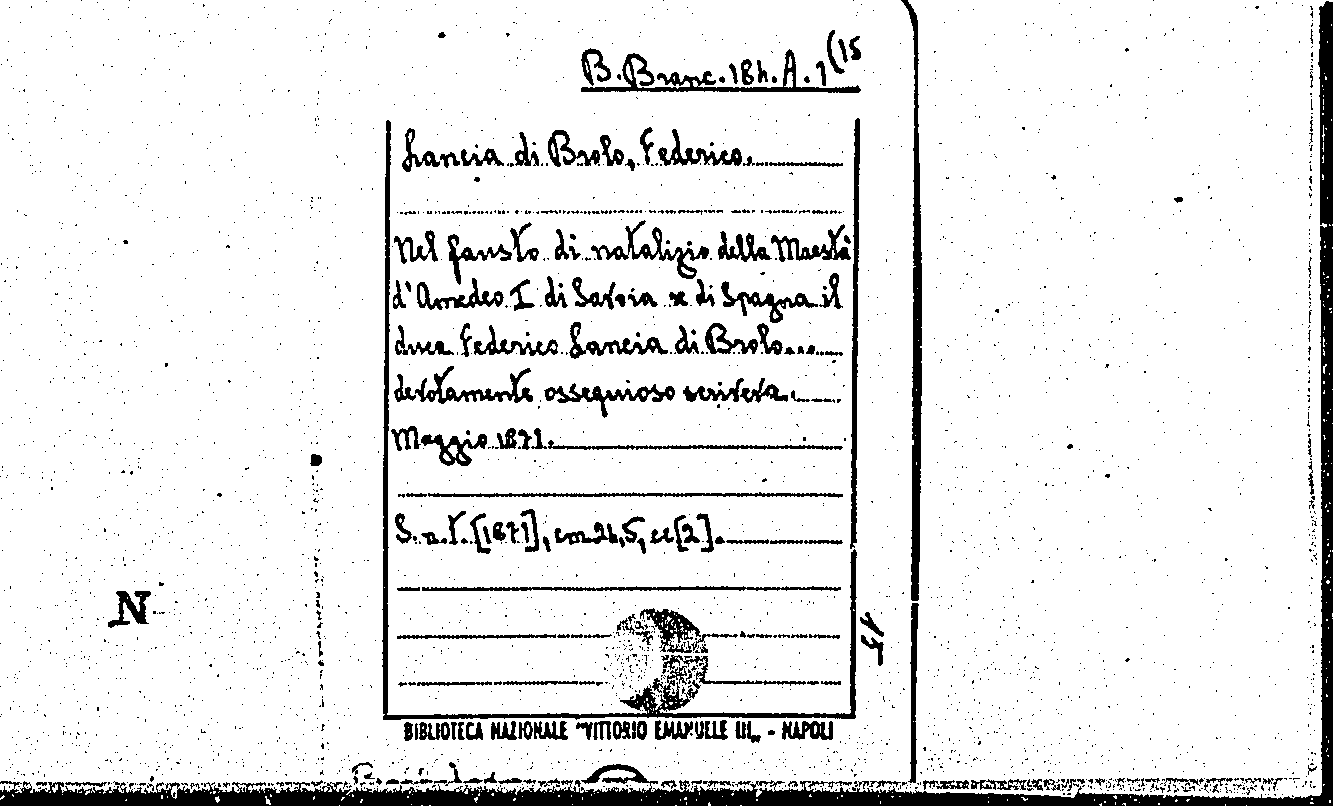 B. Branc. 184. A. 1(15
Lancia di Brolo, Federico.
Nel fausto dì natalizio della Maestà
d'Amedeo I di Savoia re di Spagna il
duca Federico Lancia di Brolo...
devotamente ossequioso scriveva.
Maggio 1871.
S.n.t. [1871], cm 24,5, cc [2].
N
15
BIBLIOTECA NAZIONALE "VITTORIO EMANUELE III„ - NAPOLI